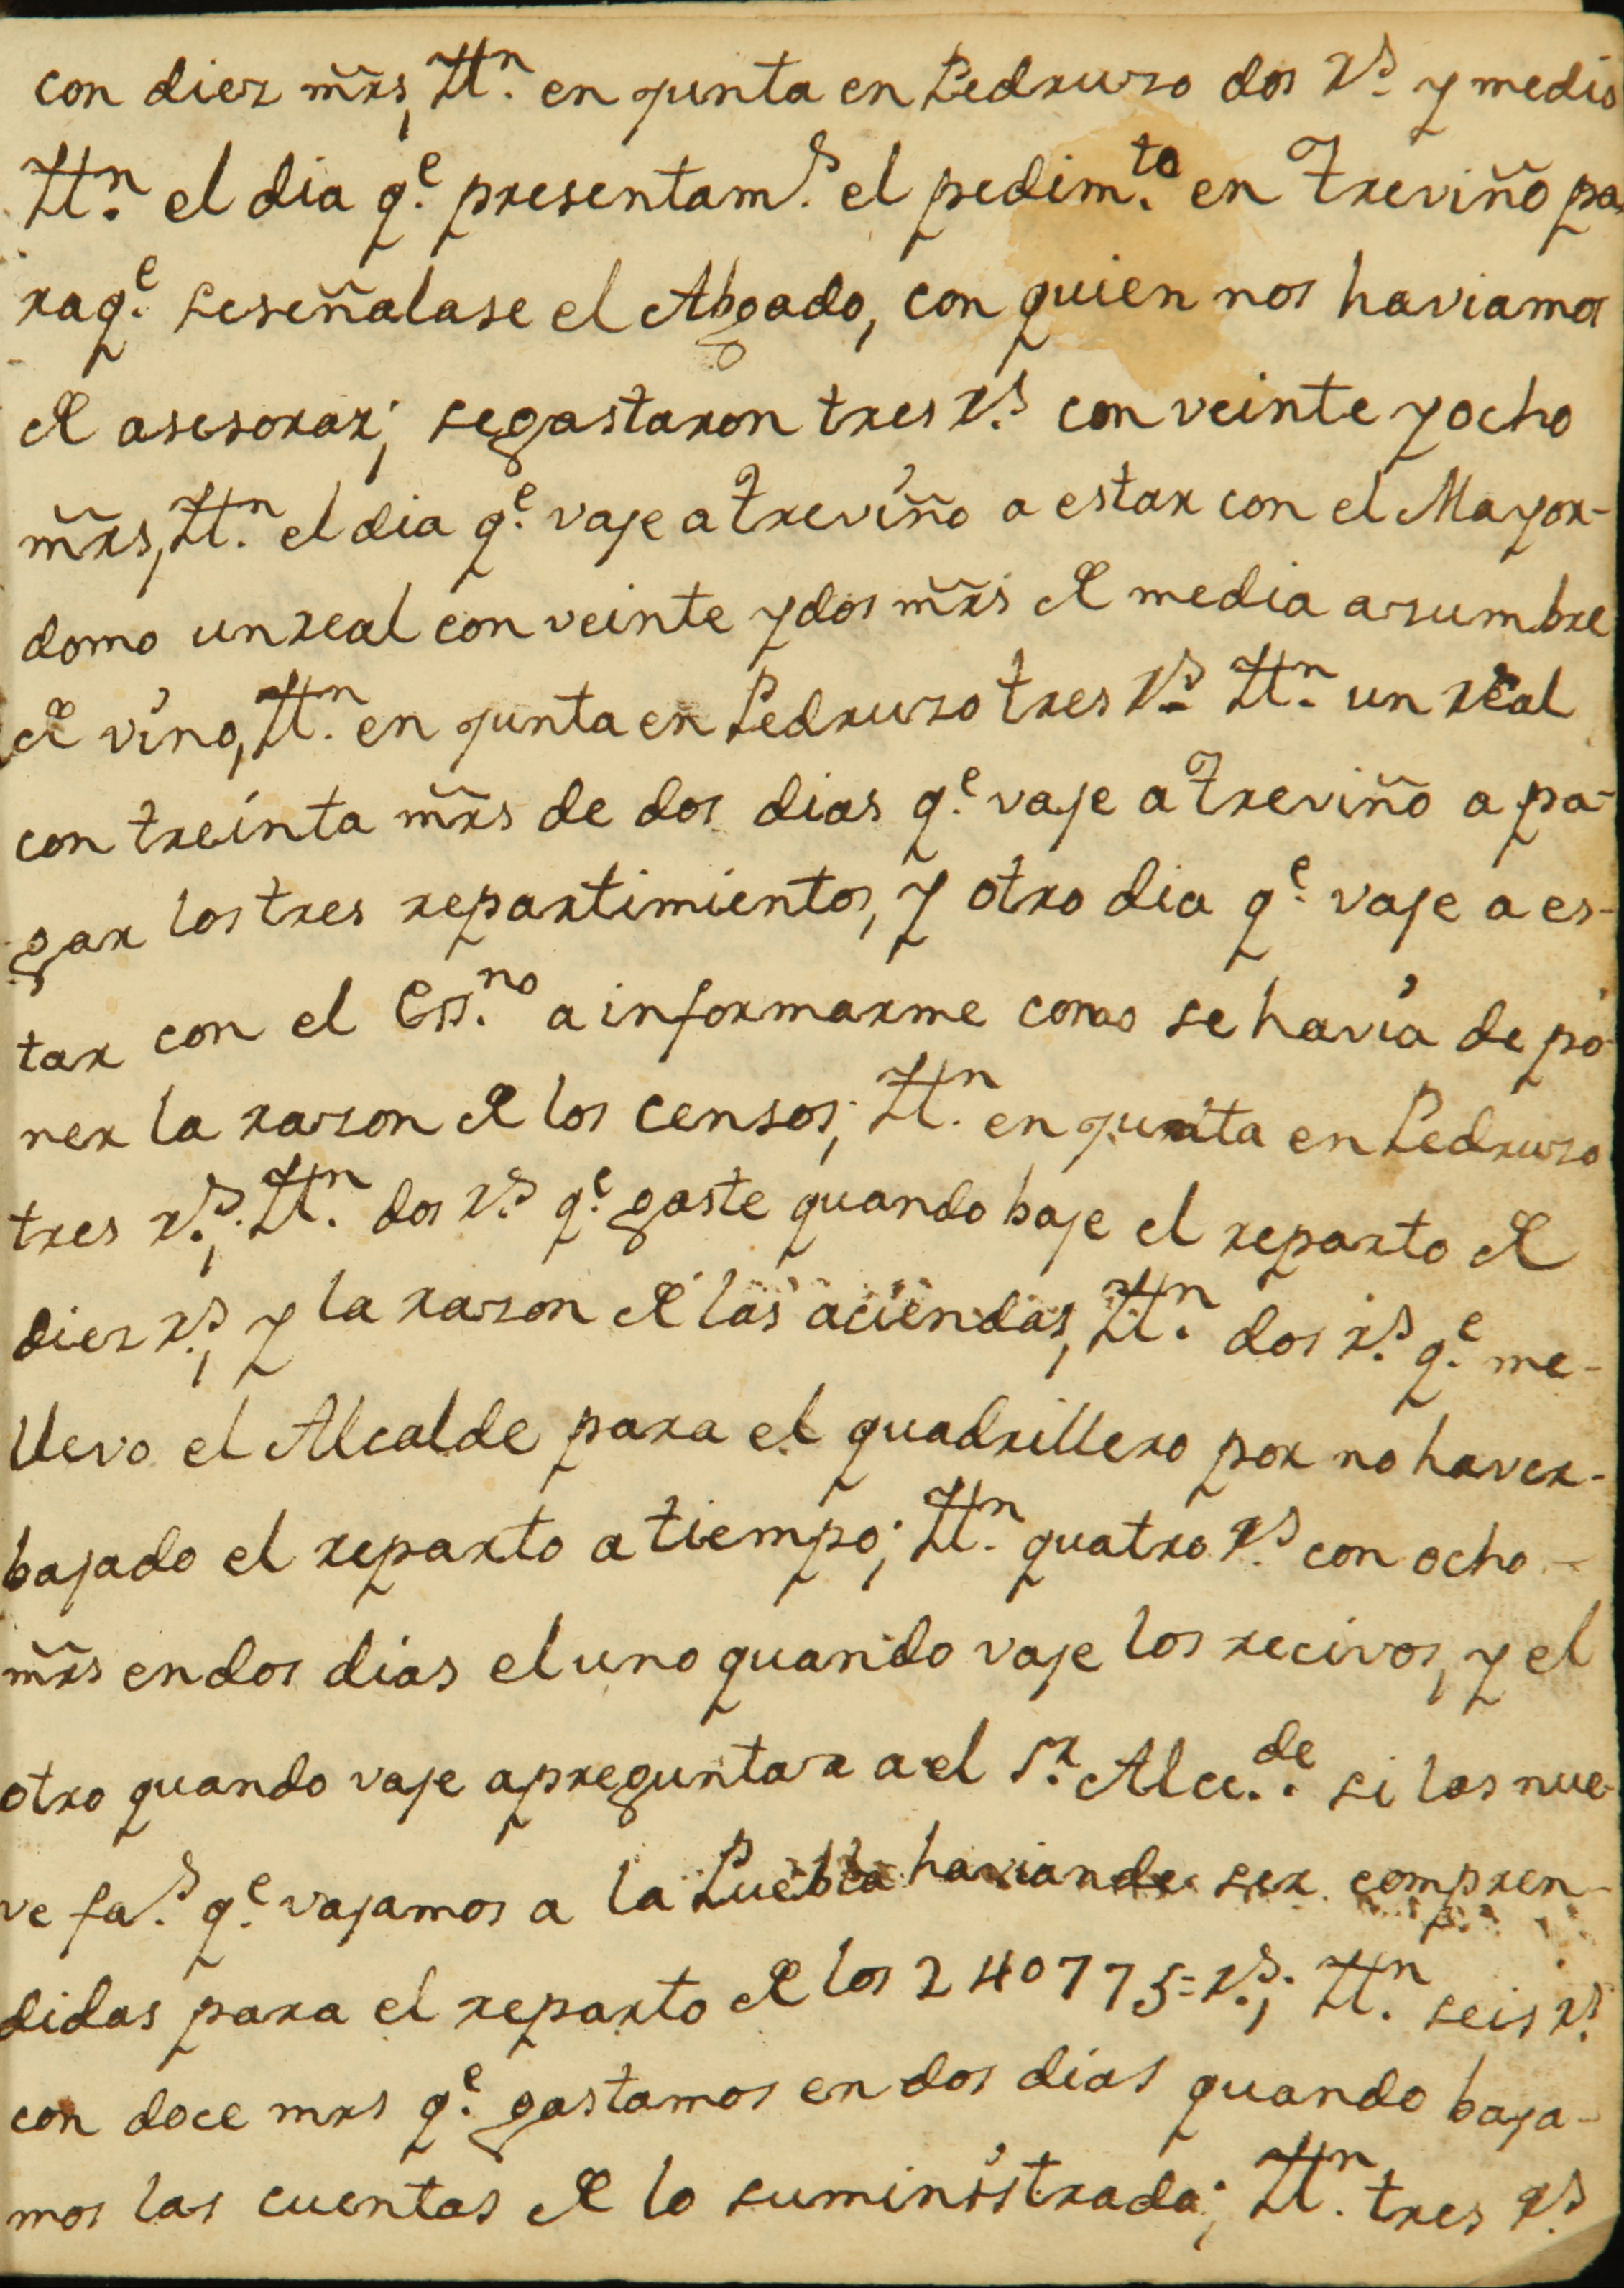 con diez mr̃s, Ittn. en junta en Pedruzo dos rs. y medio
Ittn. el dia qe. presentams. el pedimto. en Treviño pa
raqe. seseñalase el Abgado, con quien nos haviamos
de asesorar; segastaron tres rs. con veinte y ocho
mr̃s, Ittn. el dia qe. vaje a Treviño a estar con el Mayor-
domo unreal con veinte y dos mr̃s de media azumbre
de vino, Ittn. en junta en Pedruzo tres rs. Ittn. un real
con treinta mr̃s de dos dias qe. vaje a Treviño a pa-
gar los tres repartimientos, y otro dia qe. vaje a es-
tar con el Essno. a informarme como se havia de po-
ner la razon de los censos; Ittn. en junta en Pedruzo
tres rs.; Ittn. dos rs. qe. gaste quando baje el reparto de
diez rs., y la razon de las aciendas, Ittn. dos rs. qe. me-
llevo el Alcalde para el quadrillero por no haver-
bajado el reparto a tiempo; Ittn. quatro rs. con ocho -
mr̃s en dos dias el uno quando vaje los recivos, y el
otro quando vaje apreguntar a el Sr. Alcde. si las nue-
ve fas. qe. vajamos a la Puebla haviande ser compren-
didas para el reparto de los 240775=rs.; Ittn. seis rs.
con doce mrs qe. gastamos en dos dias quando baja-
mos las cuentas de lo suministrado; Ittn. tres rs.